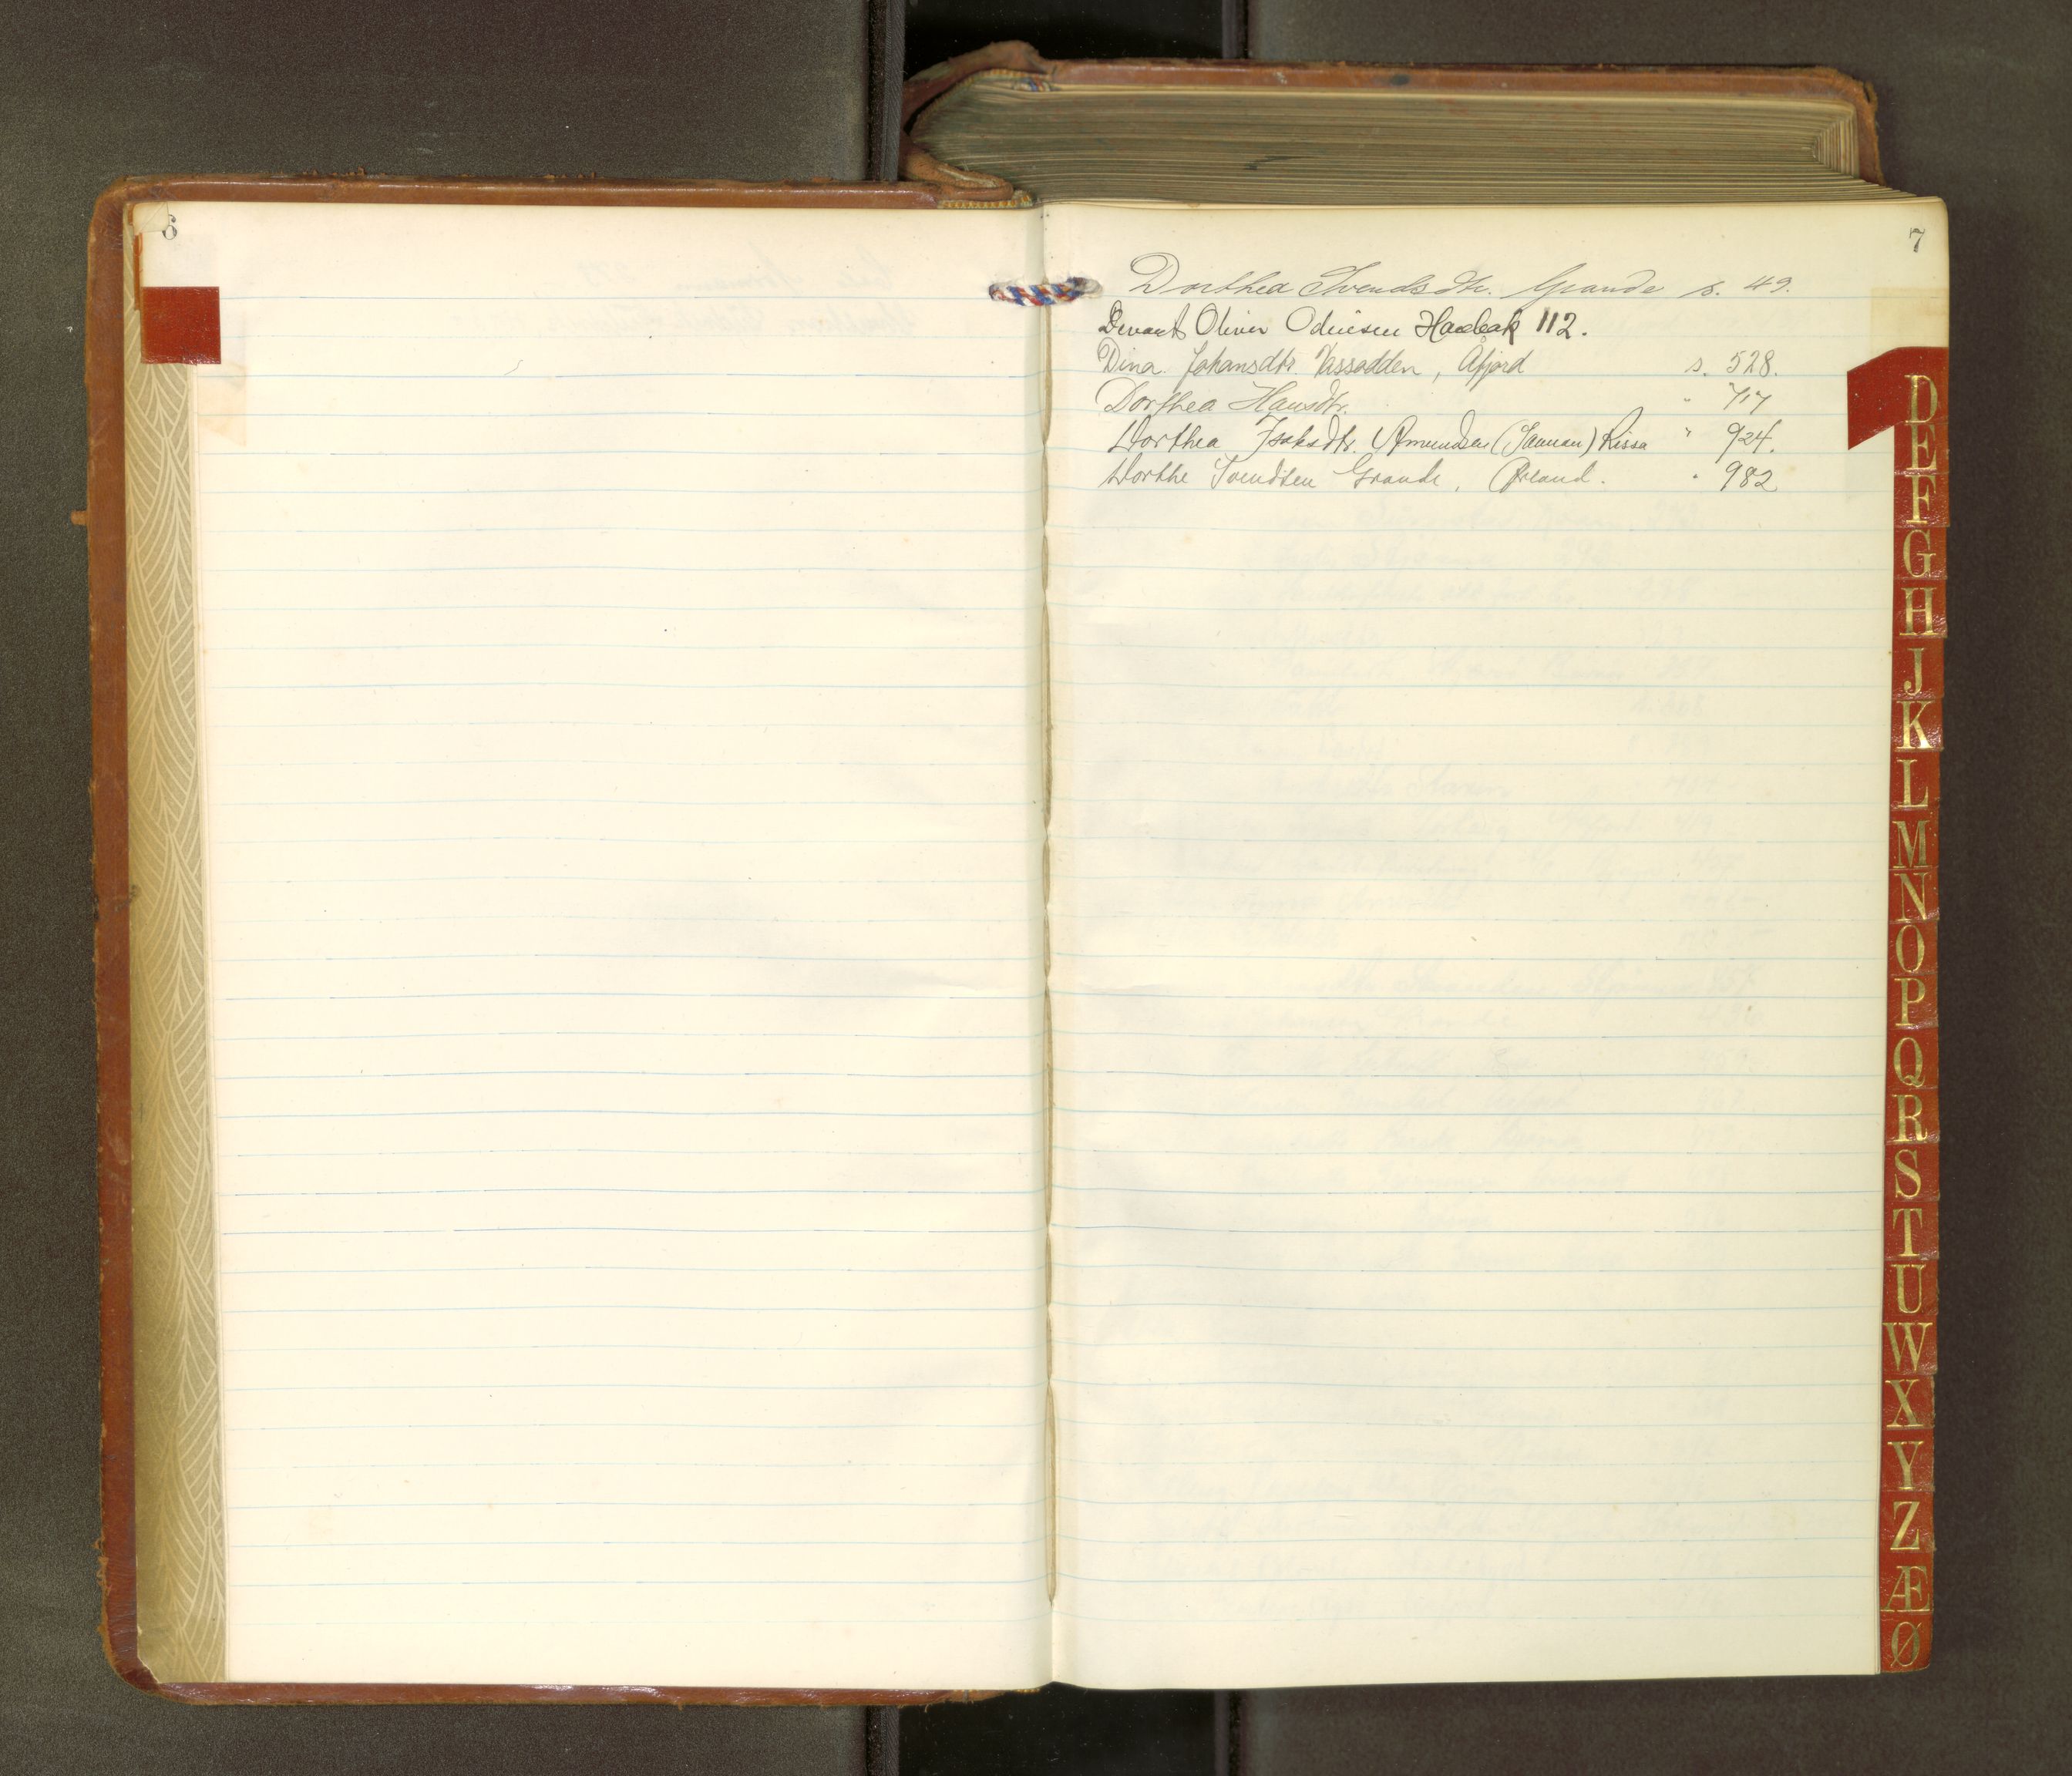 6
7
Dorthea Svendsdtr. Grande s. 49.
Oliver Odinsen 112.
Dina Johansdtr. Vassødden, Åfjord s. 528.
Dorthea Hansdtr. " 717
Dorthea Isaksdtr. Amundsen () Rissa " 924.
Dorthe Svendsen Grande, Ørland. " 982
D
E
F
G
H
J
K
L
M
N
O
P
Q
R
S
T
U
W
X
Y
Z
Æ
Ø